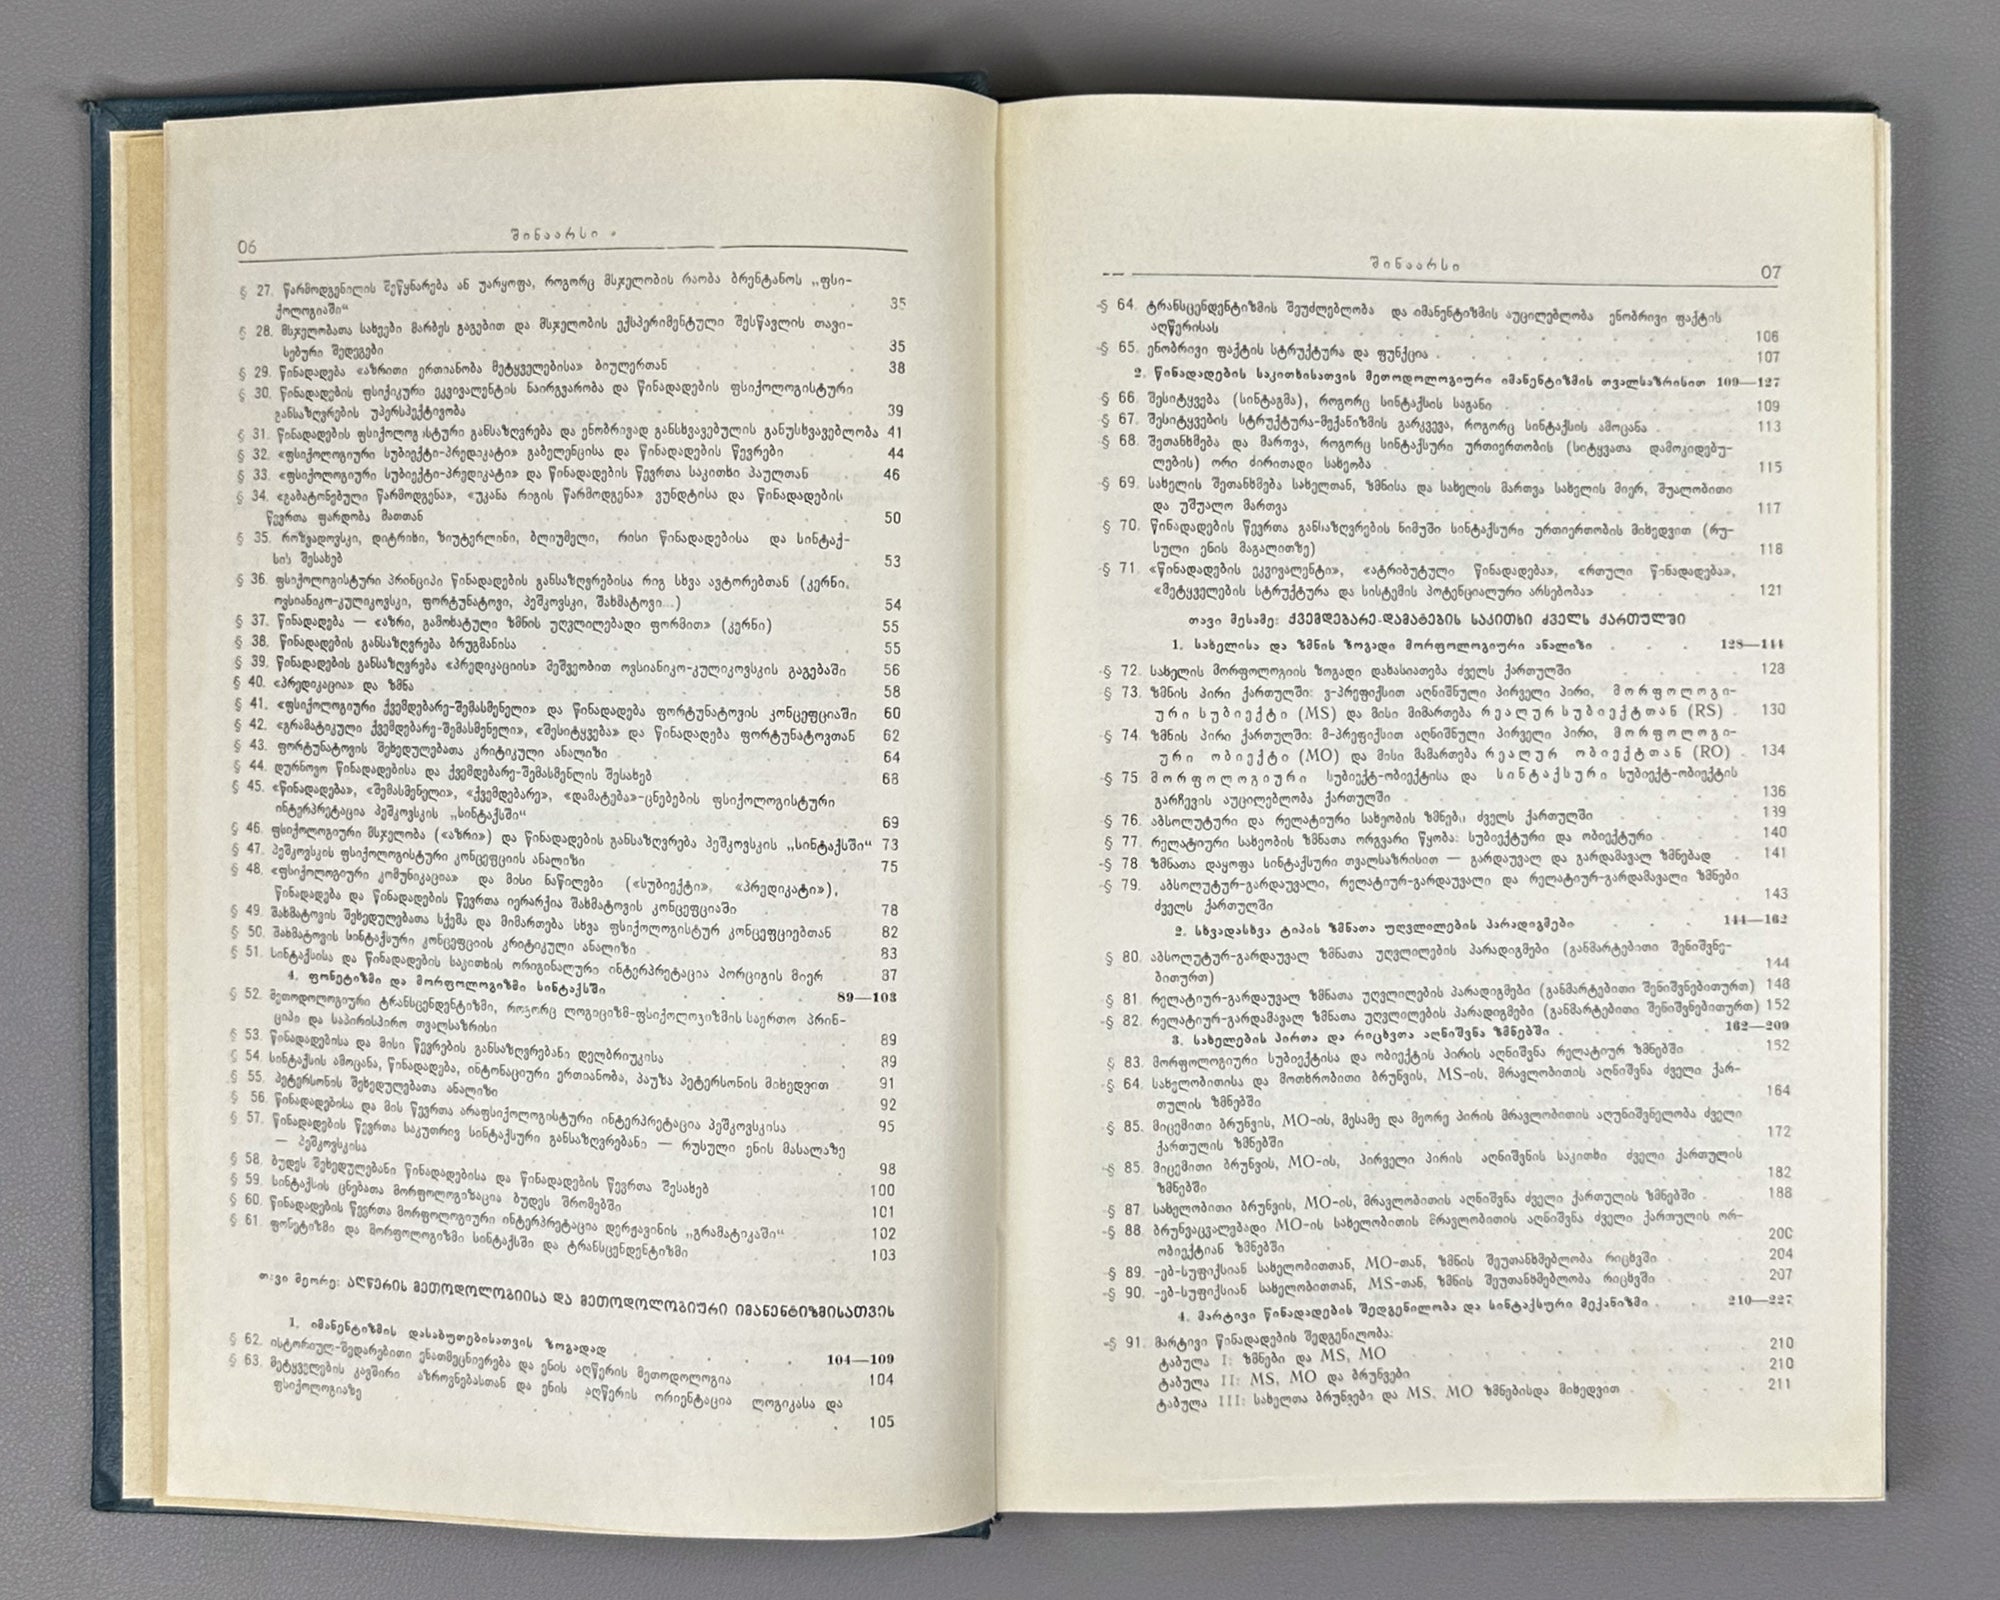 06
შინაარსი
§ 27. წარმოდგენილის შეწყნარება ან უარყოფა, როგორც მსჯელობის რაობა ბრენტანოს „ფსი-
ქოლოგიაში“ 35
§ 28. მსჯელობათა სახეები მარბეს გაგებით და მსჯელობის ექსპერიმენტული შესწავლის თავი-
სებური შედეგები 35
§ 29. წინადადება «აზრითი ერთიანობა მეტყველებისა» ბიულერთან 38
§ 30. წინადადების ფსიქიკური ეკვივალენტის ნაირგვარობა და წინადადების ფსიქოლოგისტური
განსაზღვრების უპერსპექტივობა 39
§ 31. წინადადების ფსიქოლოგისტური განსაზღვრება და ენობრივად განსხვავებულის განუსხვავებლობა 41
§ 32. «ფსიქოლოგიური სუბიექტი-პრედიკატი» გაბელენცისა და წინადადების წევრები 44
§ 33. «ფსიქოლოგიური სუბიექტი-პრედიკატი» და წინადადების წევრთა საკითხი პაულთან 46
§ 34. «გაბატონებული წარმოდგენა», «უკანა რიგის წარმოდგენა» ვუნდტისა და წინადადების
წევრთა ფარდობა მათთან 50
§ 35. როზვადოვსკი, დიტრიხი, ზიუტერლინი, ბლიუმელი, რისი წინადადებისა და სინტაქ-
სის შესახებ 53
§ 36. ფსიქოლოგისტური პრინციპი წინადადების განსაზღვრებისა რიგ სხვა ავტორებთან (კერნი,
ოვსიანიკო-კულიკოვსკი, ფორტუნატოვი, პეშკოვსკი, შახმატოვი...) 54
§ 37. წინადადება — «აზრი, გამოხატული ზმნის უღვლილებადი ფორმით» (კერნი) 55
§ 38. წინადადების განსაზღვრება ბრუგმანისა 55
§ 39. წინადადების განსაზღვრება «პრედიკაციის» მეშვეობით ოვსიანიკო-კულიკოვსკის გაგებაში 56
§ 40. «პრედიკაცია» და ზმნა 58
§ 41. «ფსიქოლოგიური ქვემდებარე-შემასმენელი» და წინადადება ფორტუნატოვის კონცეფციაში 60
§ 42. «გრამატიკული ქვემდებარე-შემასმენელი», «შესიტყვება» და წინადადება ფორტუნატოვთან 62
§ 43. ფორტუნატოვის შეხედულებათა კრიტიკული ანალიზი 64
§ 44. დურნოვო წინადადებისა და ქვემდებარე-შემასმენლის შესახებ 68
§ 45. «წინადადება», «შემასმენელი», «ქვემდებარე», «დამატება»-ცნებების ფსიქოლოგისტური
ინტერპრეტაცია პეშკოვსკის „სინტაქსში“ 69
§ 46. ფსიქოლოგიური მსჯელობა («აზრი») და წინადადების განსაზღვრება პეშკოვსკის „სინტაქსში“ 73
§ 47. პეშკოვსკის ფსიქოლოგისტური კონცეფციის ანალიზი 75
§ 48. «ფსიქოლოგიური კომუნიკაცია» და მისი ნაწილები («სუბიექტი», «პრედიკატი»),
წინადადება და წინადადების წევრთა იერარქია შახმატოვის კონცეფციაში 78
§ 49. შახმატოვის შეხედულებათა სქემა და მიმართება სხვა ფსიქოლოგისტურ კონცეფციებთან 82
§ 50. შახმატოვის სინტაქსური კონცეფციის კრიტიკული ანალიზი 83
§ 51. სინტაქსისა და წინადადების საკითხის ორიგინალური ინტერპრეტაცია პორციგის მიერ 87
4. ფონეტიზმი და მორფოლოგიზმი სინტაქსში 89—103
§ 52. მეთოდოლოგიური ტრანსცენდენტიზმი, როგორც ლოგიციზმ-ფსიქოლოგიზმის საერთო პრინ-
ციპი და საპირისპირო თვალსაზრისი 89
§ 53. წინადადებისა და მისი წევრების განსაზღვრებანი დელბრიუკისა 89
§ 54. სინტაქსის ამოცანა, წინადადება, ინტონაციური ერთიანობა, პაუზა პეტერსონის მიხედვით 91
§ 55. პეტერსონის შეხედულებათა ანალიზი 92
§ 56. წინადადებისა და მის წევრთა არაფსიქოლოგისტური ინტერპრეტაცია პეშკოვსკისა 95
§ 57. წინადადების წევრთა საკუთრივ სინტაქსური განსაზღვრებანი — რუსული ენის მასალაზე
— პეშკოვსკისა 98
§ 58. ბუდეს შეხედულებანი წინადადებისა და წინადადების წევრთა შესახებ 100
§ 59. სინტაქსის ცნებათა მორფოლოგიზაცია ბუდეს შრომებში 101
§ 60. წინადადების წევრთა მორფოლოგიური ინტერპრეტაცია დერჟავინის „გრამატიკაში“ 102
§ 61. ფონეტიზმი და მორფოლოგიზმი სინტაქსში და ტრანსცენდენტიზმი 103
თავი მეორე: აღწერის მეთოდოლოგიისა და მეთოდოლოგიური იმანენტიზმისათვის
1. იმანენტიზმის დასაბუთებისათვის ზოგადად 104—109
§ 62. ისტორიულ-შედარებითი ენათმეცნიერება და ენის აღწერის მეთოდოლოგია 104
§ 63. მეტყველების კავშირი აზროვნებასთან და ენის აღწერის ორიენტაცია ლოგიკასა და
ფსიქოლოგიაზე 105
შინაარსი 07
§ 64. ტრანსცენდენტიზმის შეუძლებლობა და იმანენტიზმის აუცილებლობა ენობრივი ფაქტის
აღწერისას 106
§ 65. ენობრივი ფაქტის სტრუქტურა და ფუნქცია 107
2. წინადადების საკითხისათვის მეთოდოლოგიური იმანენტიზმის თვალსაზრისით 109—127
§ 66. შესიტყვება (სინტაგმა), როგორც სინტაქსის საგანი 109
§ 67. შესიტყვების სტრუქტურა-მექანიზმის გარკვევა, როგორც სინტაქსის ამოცანა 113
§ 68. შეთანხმება და მართვა, როგორც სინტაქსური ურთიერთობის (სიტყვათა დამოკიდებუ-
ლების) ორი ძირითადი სახეობა 115
§ 69. სახელის შეთანხმება სახელთან, ზმნისა და სახელის მართვა სახელის მიერ, შუალობითი
და უშუალო მართვა 117
§ 70. წინადადების წევრთა განსაზღვრების ნიმუში სინტაქსური ურთიერთობის მიხედვით (რუ-
სული ენის მაგალითზე) 118
§ 71. «წინადადების ეკვივალენტი», «ატრიბუტული წინადადება», «რთული წინადადება»,
«მეტყველების სტრუქტურა და სისტემის პოტენციალური არსებობა» 121
თავი მესამე: ქვემდებარე-დამატების საკითხი ძველს ქართულში
1. სახელისა და ზმნის ზოგადი მორფოლოგიური ანალიზი 128—144
§ 72. სახელის მორფოლოგიის ზოგადი დახასიათება ძველს ქართულში 128
§ 73. ზმნის პირი ქართულში: ვ-პრეფიქსით აღნიშნული პირველი პირი, მორფოლოგი-
ური სუბიექტი (MS) და მისი მიმართება რეალურ სუბიექტთან (RS) 130
§ 74. ზმნის პირი ქართულში: მ-პრეფიქსით აღნიშნული პირველი პირი, მორფოლოგი-
ური ობიექტი (MO) და მისი მამართება რეალურ ობიექტთან (RO) 134
§ 75 მორფოლოგიური სუბიექტ-ობიექტისა და სინტაქსური სუბიექტ-ობიექტის
გარჩევის აუცილებლობა ქართულში 136
§ 76. აბსოლუტური და რელატიური სახეობის ზმნები ძველს ქართულში 139
§ 77. რელატიური სახეობის ზმნათა ორგვარი წყობა: სუბიექტური და ობიექტური 140
§ 78. ზმნათა დაყოფა სინტაქსური თვალსაზრისით — გარდაუვალ და გარდამავალ ზმნებად 141
§ 79. აბსოლუტურ-გარდაუვალი, რელატიურ-გარდაუვალი და რელატიურ-გარდამავალი ზმნები
ძველს ქართულში 143
2. სხვადასხვა ტიპის ზმნათა უღვლილების პარადიგმები 144—162
§ 80. აბსოლუტურ-გარდაუვალ ზმნათა უღვლილების პარადიგმები (განმარტებითი შენიშვნე-
ბითურთ) 144
§ 81. რელატიურ-გარდაუვალ ზმნათა უღვლილების პარადიგმები (განმარტებითი შენიშვნებითურთ) 148
§ 82. რელატიურ-გარდამავალ ზმნათა უღვლილების პარადიგმები (განმარტებითი შენიშვნებითურთ) 152
3. სახელების პირთა და რიცხვთა აღნიშვნა ზმნებში 162—209
§ 83. მორფოლოგიური სუბიექტისა და ობიექტის პირის აღნიშვნა რელატიურ ზმნებში 152
§ 64. სახელობითისა და მოთხრობითი ბრუნვის, MS-ის, მრავლობითის აღნიშვნა ძველი ქარ-
თულის ზმნებში 164
§ 85. მიცემითი ბრუნვის, MO-ის, მესამე და მეორე პირის მრავლობითის აღუნიშვნელობა ძველი
ქართულის ზმნებში 172
§ 85. მიცემითი ბრუნვის, MO-ის, პირველი პირის აღნიშვნის საკითხი ძველი ქართულის
ზმნებში 182
§ 87. სახელობითი ბრუნვის, MO-ის, მრავლობითის აღნიშვნა ძველი ქართულის ზმნებში 188
§ 88. ბრუნვაცვალებადი MO-ის სახელობითის მრავლობითის აღნიშვნა ძველი ქართულის ორ-
ობიექტიან ზმნებში 200
§ 89. -ებ-სუფიქსიან სახელობითთან, MO-თან, ზმნის შეუთანხმებლობა რიცხვში 204
§ 90. -ებ-სუფიქსიან სახელობითთან, MS-თან, ზმნის შეუთანხმებლობა რიცხვში 207
4. მარტივი წინადადების შედგენილობა და სინტაქსური მექანიზმი 210—227
§ 91. მარტივი წინადადების შედგენილობა:
ტაბულა I: ზმნები და MS, MO 210
ტაბულა II: MS, MO და ბრუნვები 210
ტაბულა III: სახელთა ბრუნვები და MS, MO ზმნებისდა მიხედვით 211